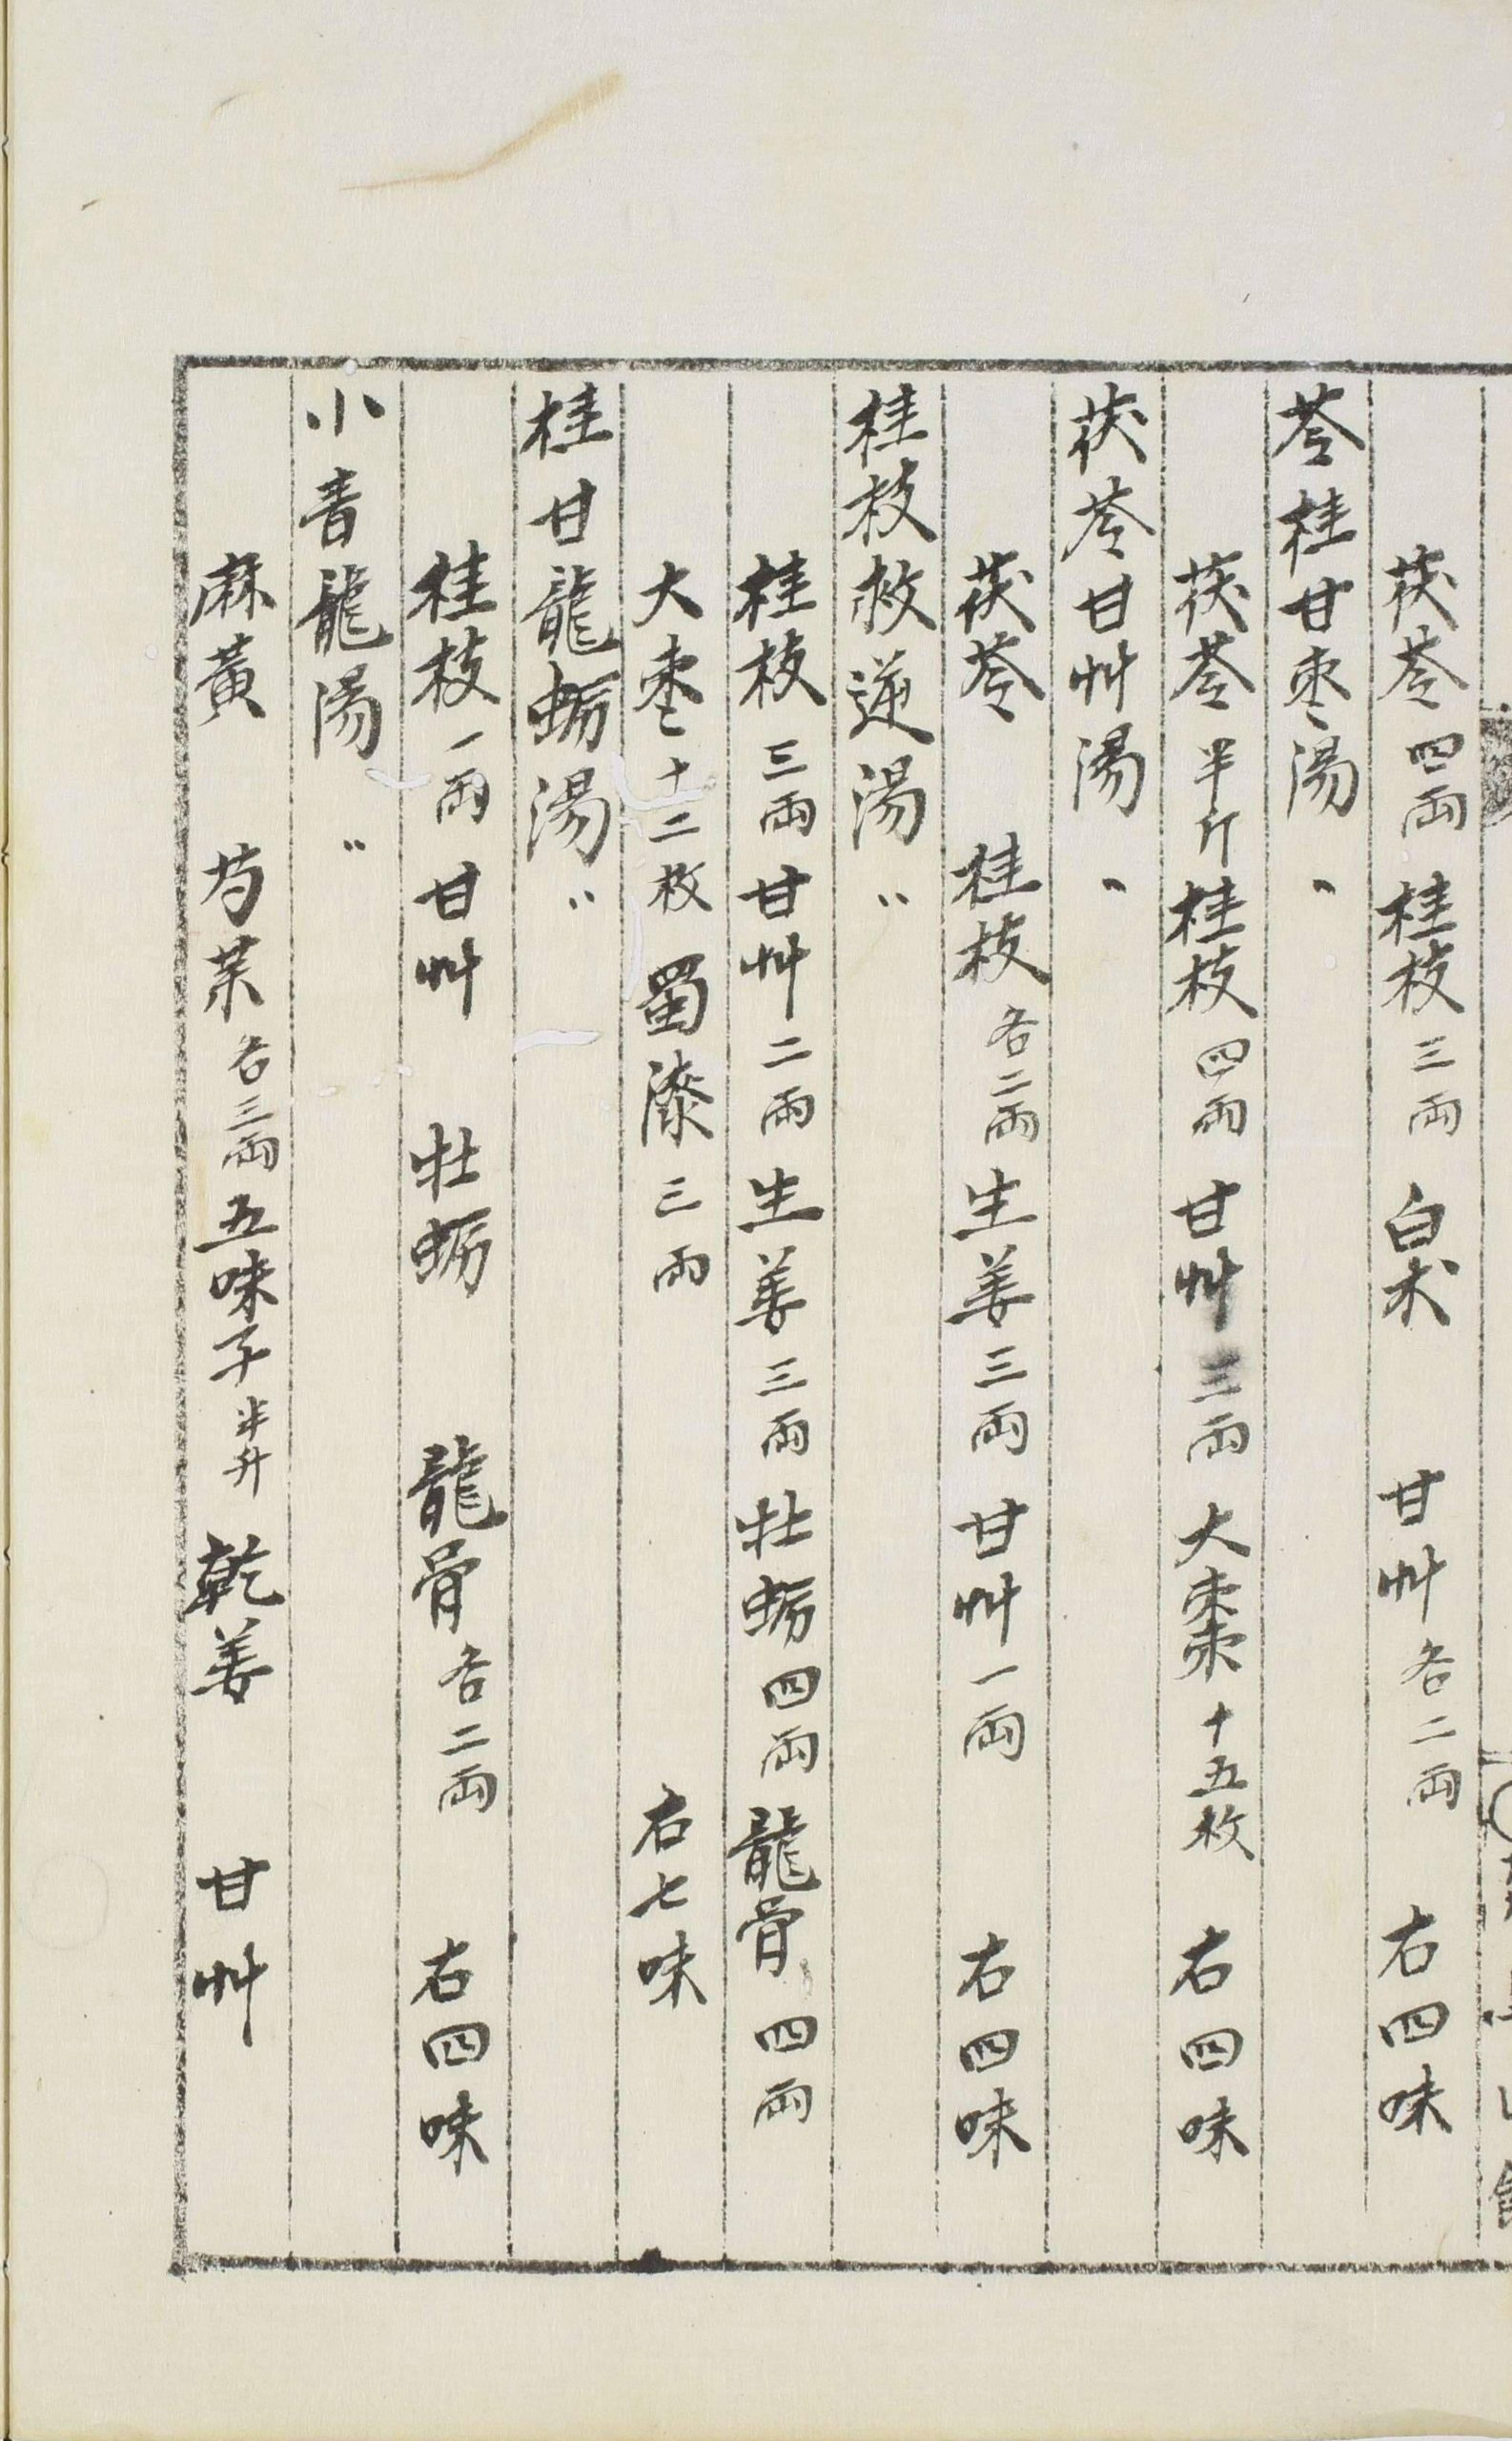 茯苓四兩桂枝三兩白朮甘艸各二兩右四味
苓桂甘枣湯〃
茯苓半斤桂枝四兩甘艸三兩大棗十五枚右四味
茯苓甘艸湯〃
茯苓桂枝各二兩生姜三兩甘艸一兩右四味
桂枝救逆湯〃
桂枝三兩甘艸二兩生姜三兩牡蛎四兩龍骨四兩
大枣十二枚蜀漆三兩右七味
桂甘龍蛎湯〃
桂枝一兩甘艸牡蛎龍骨各二兩右四味
小青龍湯〃
麻黃芍藥各三兩五味子半升乾姜甘艸